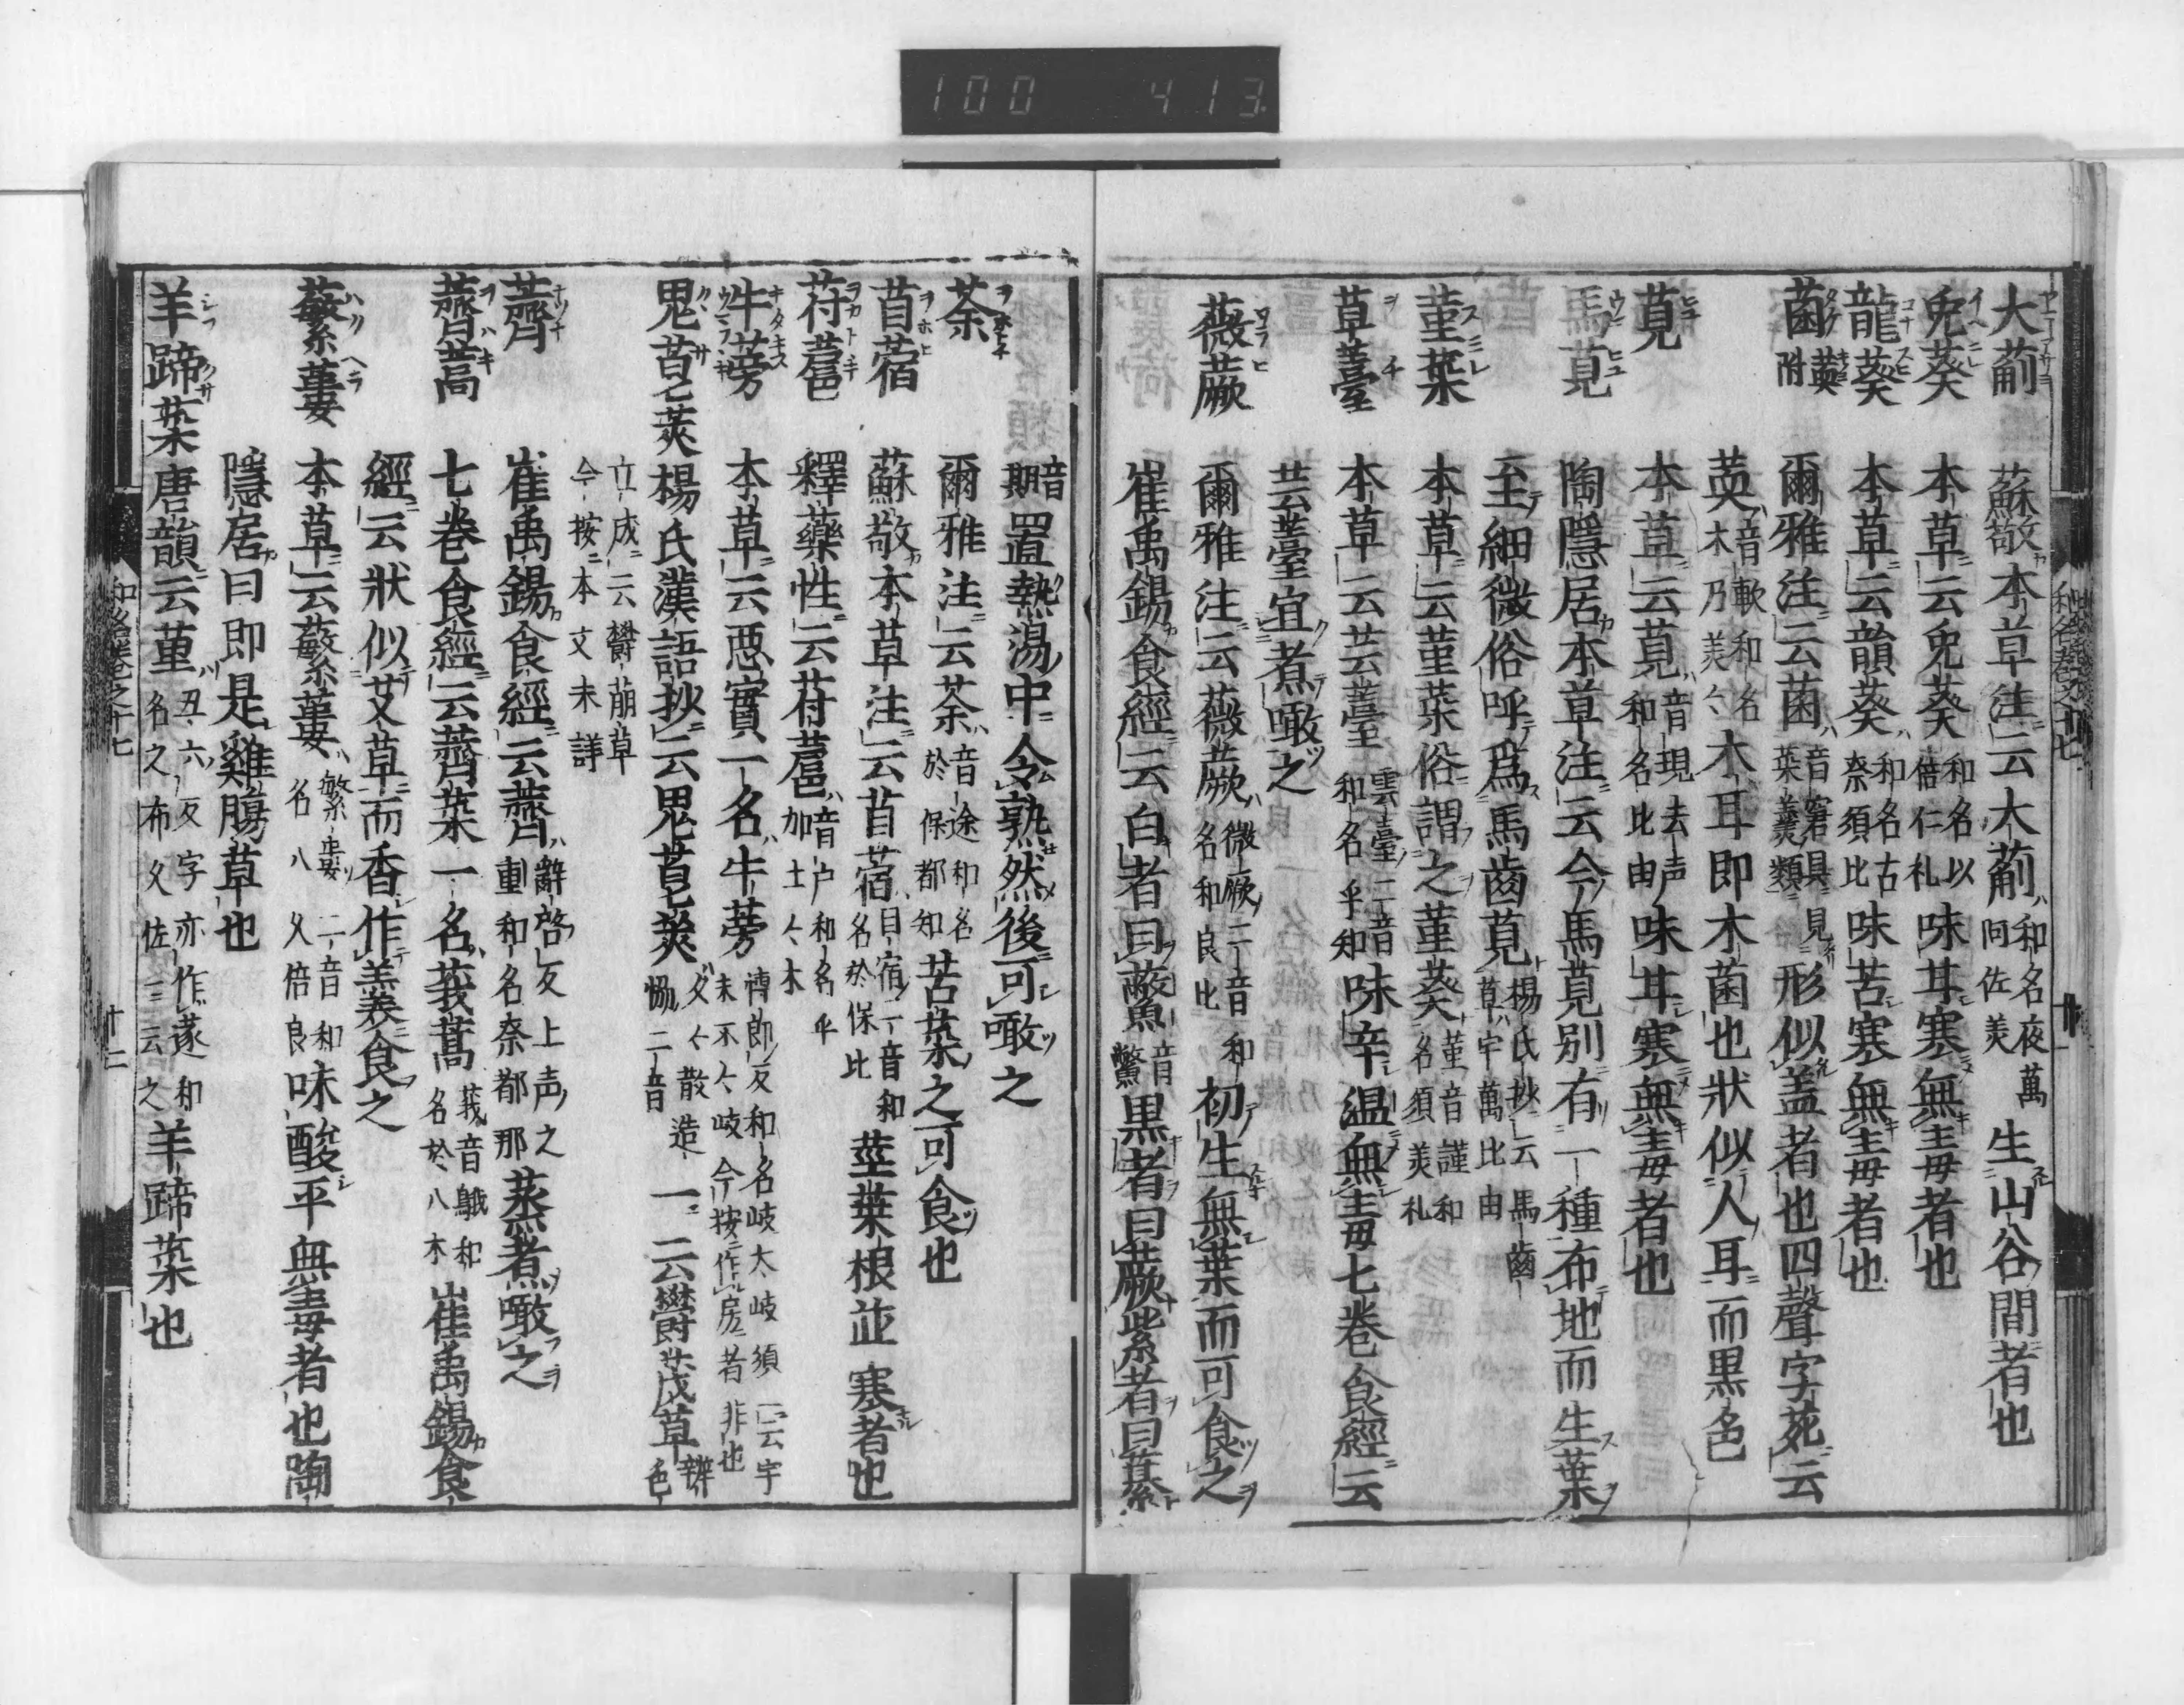 100 413
大葪 蘇敬本草注云大葪和名夜萬阿佐美生山谷間者也
兎葵 本草云兎葵和名以倍仁札味甘寒無毒者也
龍葵 本草云龍葵和名古奈須比味苦寒無毒者也
菌 英附 爾雅注云菌音窘具見菜羹類形似盖者也四聲字苑云
英音軟和名木乃美々木耳即木菌也狀似人耳而黒色
莧 本草云莧音現去声和名比由味甘寒無毒者也
馬莧 陶隱居本草注云今馬莧別有一種布地而生葉
至細微俗呼爲馬齒莧楊氏抄云馬齒草宇萬比由
菫菜 本草云菫菜俗謂之菫葵菫音謹和名須美札
芸薹 本草云芸薹雲臺二音和名乎知味辛温無毒七巻食經云
芸薹宜煮噉之
薇蕨 爾雅注云薇蕨微厥二音和名和良比初生無葉而可食之
崔禹錫食經云白者曰虌音鱉黒者曰蕨紫者曰藄
音期置熱湯中令熟然後可噉之
荼 爾雅注云荼音途和名於保都知苦菜之可食也
苜蓿 蘇敬本草注云苜蓿目宿二音和名於保比茎葉根並寒者也
苻蔰 釋藥性云苻蔰音户和名乎加土々木
牛蒡 本草云悪實一名牛蒡博郎反和名岐太岐須一云宇末不々岐今按作房者非也
鬼莒莢 楊氏漢語抄云鬼莒莢久々散造二音一云欝茂草辨色
立成云欝萠草今按本文未詳
薺 崔禹錫食經云薺辭啓反上声之重和名奈都那蒸煮噉之
薺蒿 七巻食經云薺菜一名莪蒿莪音鵝和名於八木崔禹錫食
經云狀似艾草而香作羹食之
蘩蔞 本草云蘩蔞繁婁二音和名八久倍良味酸平無毒者也陶
隱居曰即是雞膓草也
羊蹄菜 唐韻云菫丑六反字亦作蓫和名之布久佐一云之羊蹄菜也
和名巻之十七
十二